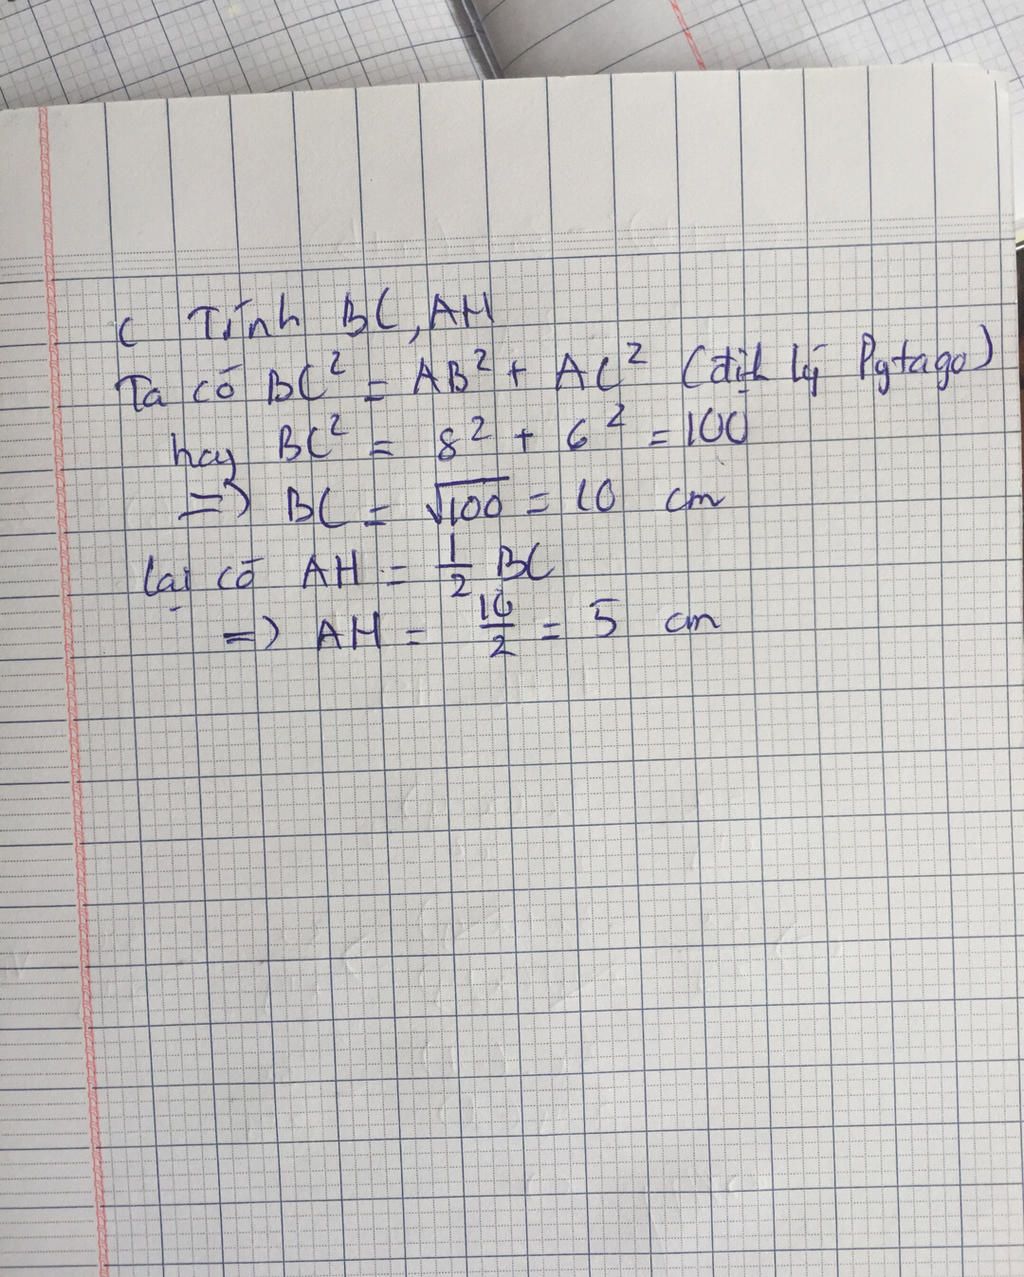 c Tính BC, AH
Ta có BC² = AB² + AC² (định lý Pytago)
hay BC² = 8² + 6² = 100
=> BC = √100 = 10 cm
lại có AH = 1/2 BC
=> AH = 10/2 = 5 cm